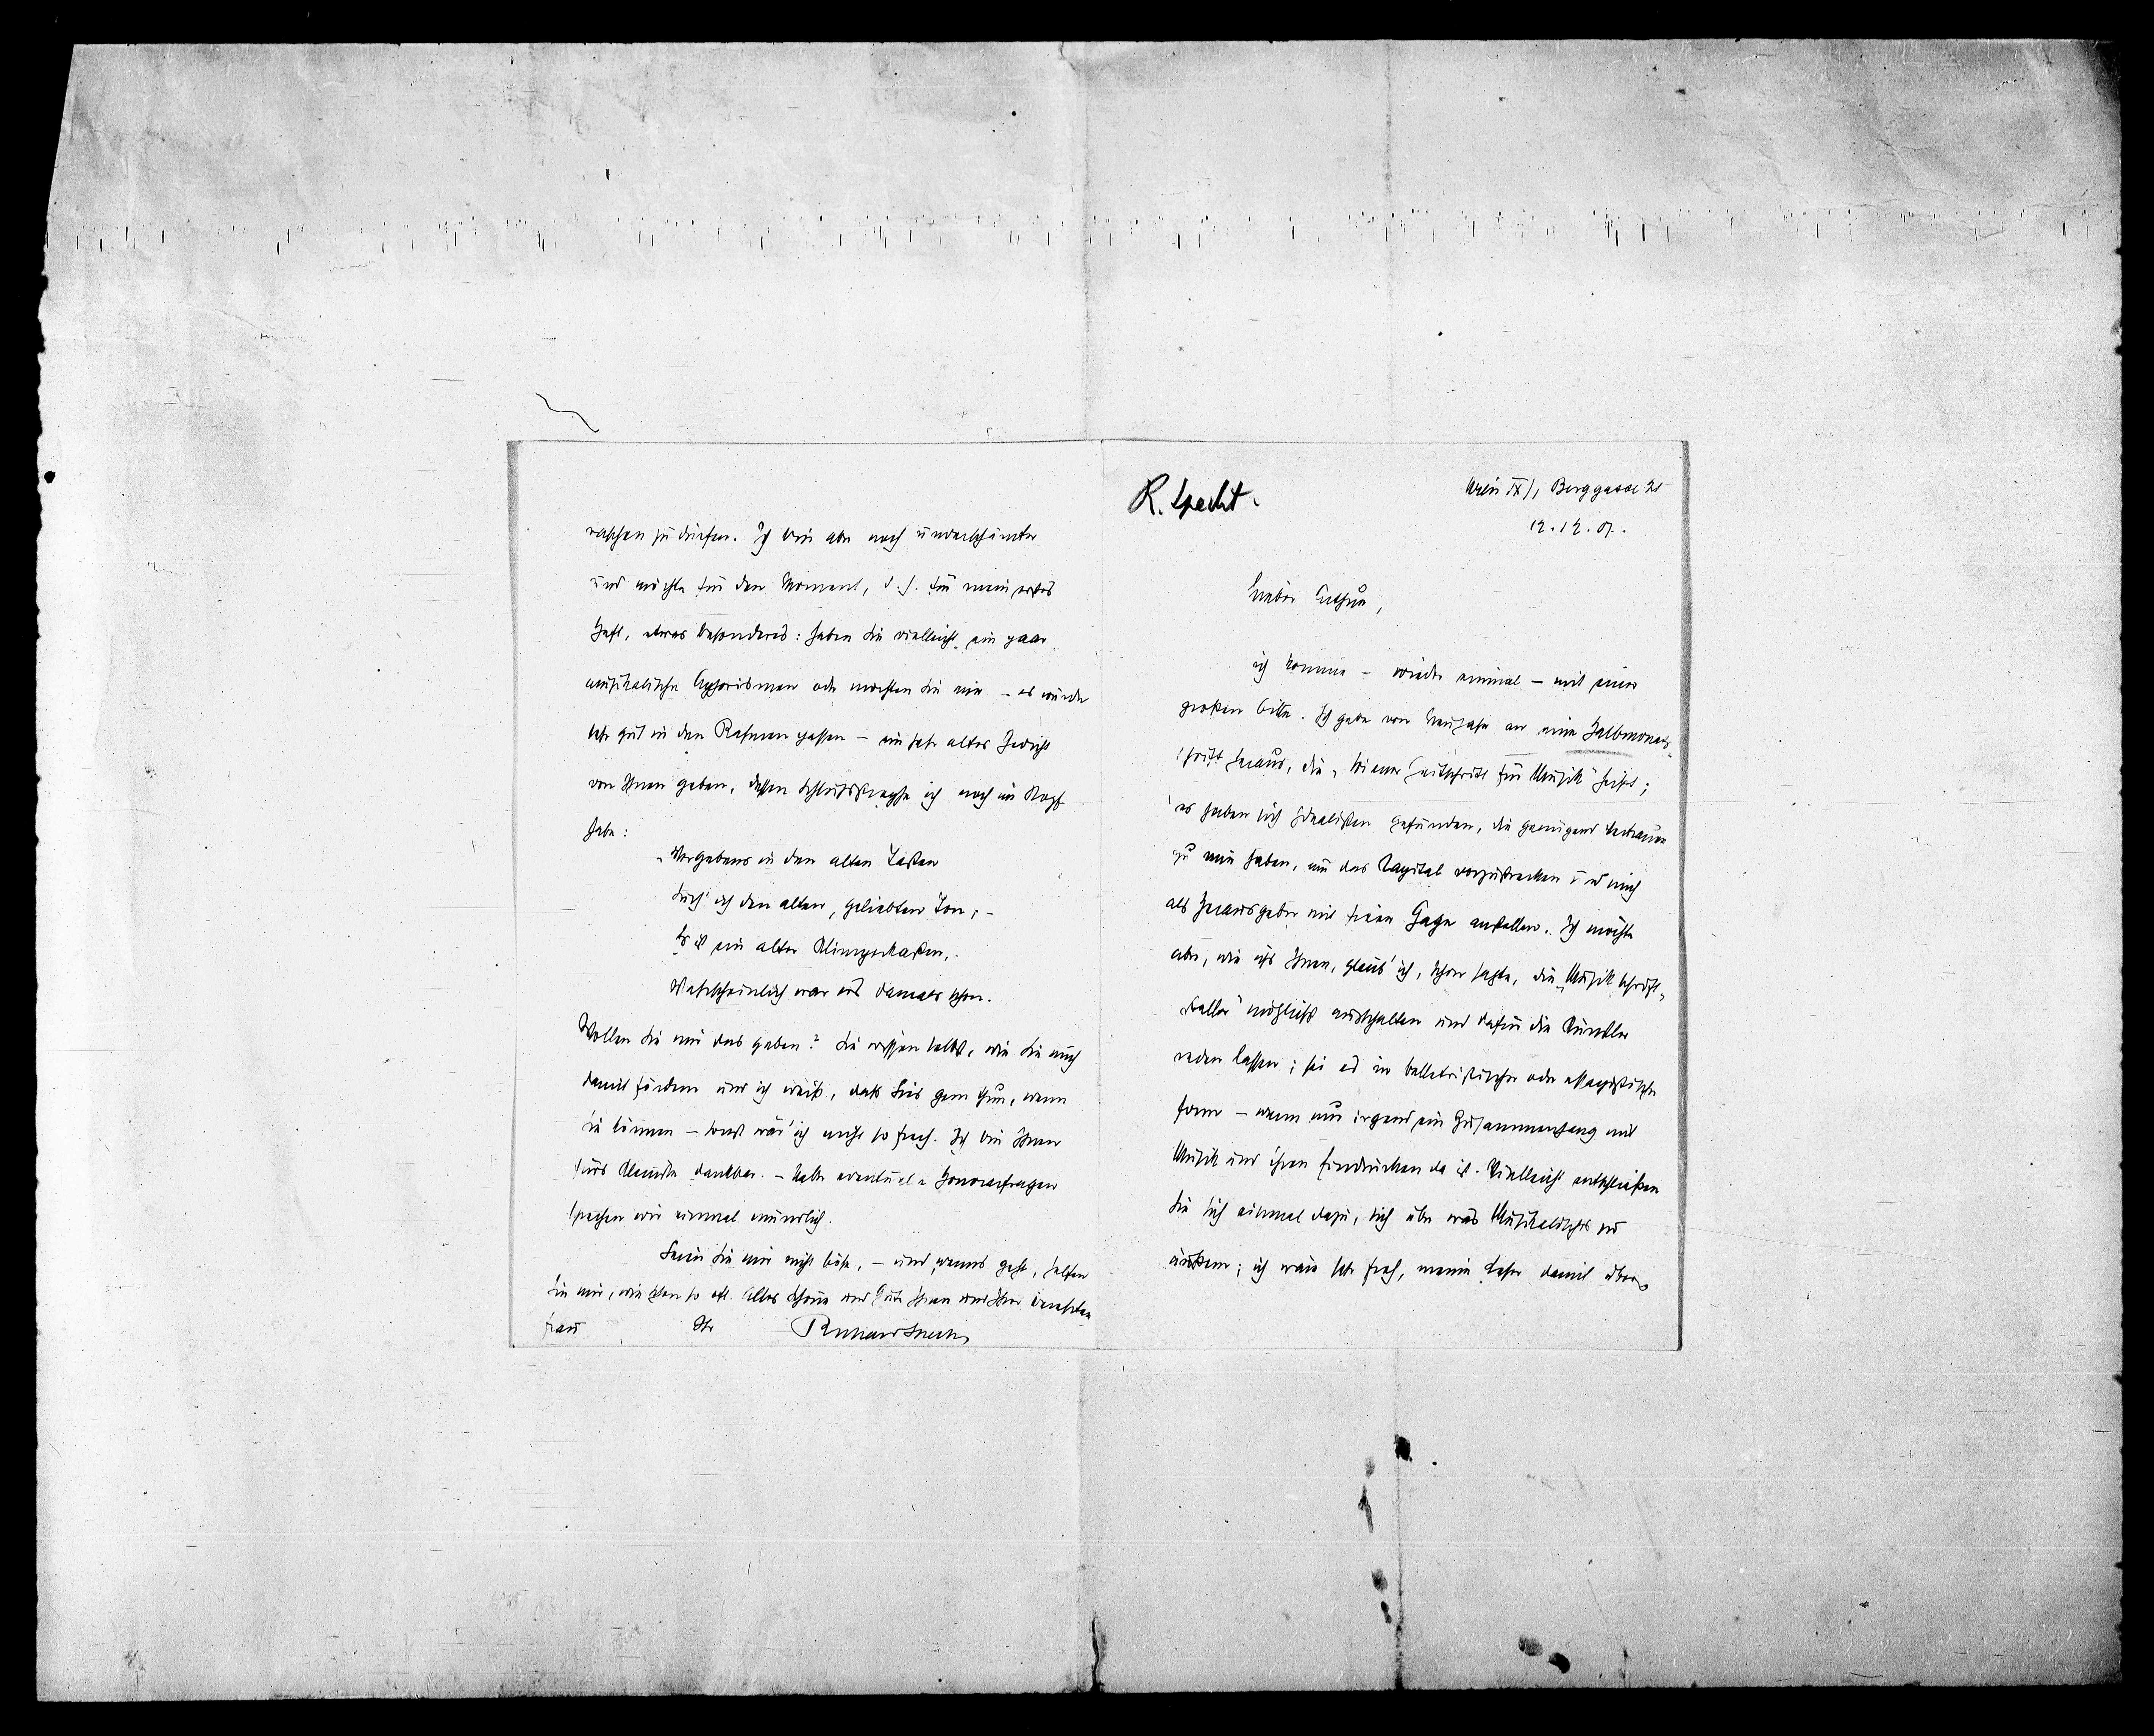 R. Specht.
Wien IX/1, Berggasse 21
12. 12. 07.
Lieber Arthur,
ich komme – wieder einmal – mit einer
großen Bitte. Ich gebe von Neujahr an eine Halbmonats-
schrift heraus, die „Wiener Zeitschrift für Musik" heißt;
es haben sich Idealisten gefunden, die genügend Vertrauen
zu mir haben, um das Kapital vorzustrecken und mich
als Herausgeber mit fixer Gage anstellen. Ich möchte
aber, wie ichs Ihnen, glaub' ich, schon sagte, die „Musikschrift-
steller" möglichst ausschalten und dafür die Künstler
reden lassen; sei es in belletristischer oder essayistischer
Form – wenn nur irgend ein Zusammenhang mit
Musik und ihren Eindrücken da ist. Vielleicht entschließen
Sie sich einmal dazu, sich über was Musikalisches zu
äußern; ich wäre sehr froh, meine Leser damit über-
raschen zu dürfen. Ich bin aber noch unverschämter
und möchte für den Moment, d. h. für mein erstes
Heft, etwas besonderes: haben Sie vielleicht ein paar
musikalische Aphorismen oder möchten Sie mir – es würde
sehr gut in den Rahmen passen – ein sehr altes Gedicht
von Ihnen geben, dessen Schlußstrophe ich noch im Kopf
habe:
„Vergebens in den alten Tasten
Such' ich den alten, geliebten Ton, –
Es ist ein alter Klimperkasten,
Wahrscheinlich war ers damals schon.
Wollen Sie mir das geben? Sie wissen selbst, wie Sie mich
damit fördern und ich weiß, daß Sies gern thun, wenn
Sie können – sonst wär' ich nicht so frech. Ich bin Ihnen
fürs Kleinste dankbar. – Ueber eventuelle Honorarfragen
sprechen wir einmal mündlich.
Seien Sie mir nicht böse, – und wenns geht, helfen
Sie mir, wie schon so oft. Alles Schöne und Gute Ihnen und Ihrer verehrten
Frau
Ihr
Richard Specht